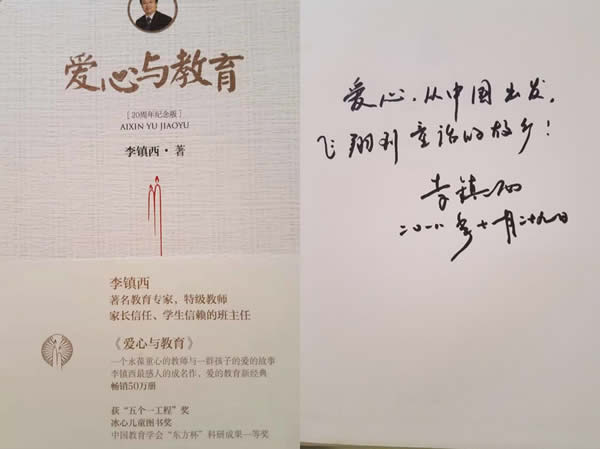 爱心与教育
［20周年纪念版］
AIXIN YU JIAOYU
李镇西·著
李镇西
著名教育专家，特级教师
家长信任、学生信赖的班主任
《爱心与教育》
一个永葆童心的教师与一群孩子的爱的故事
李镇西最感人的成名作，爱的教育新经典
畅销50万册
获“五个一工程”奖
冰心儿童图书奖
中国教育学会“东方杯”科研成果一等奖
爱心，从中国出发，
飞翔到童话的故乡！
李镇西
二〇一八年十一月二十九日